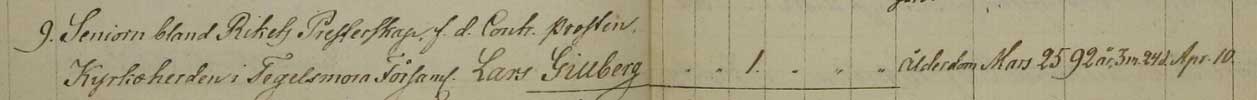 9. Seniorn bland Rikets Presterskap, f. d. Contr. Prosten,
Kyrkoherden i Tegelsmora Församl. Lars Gillberg . . 1. . " " ålderdom Mars 25 92 år, 3 m. 24 d. Apr. 10.